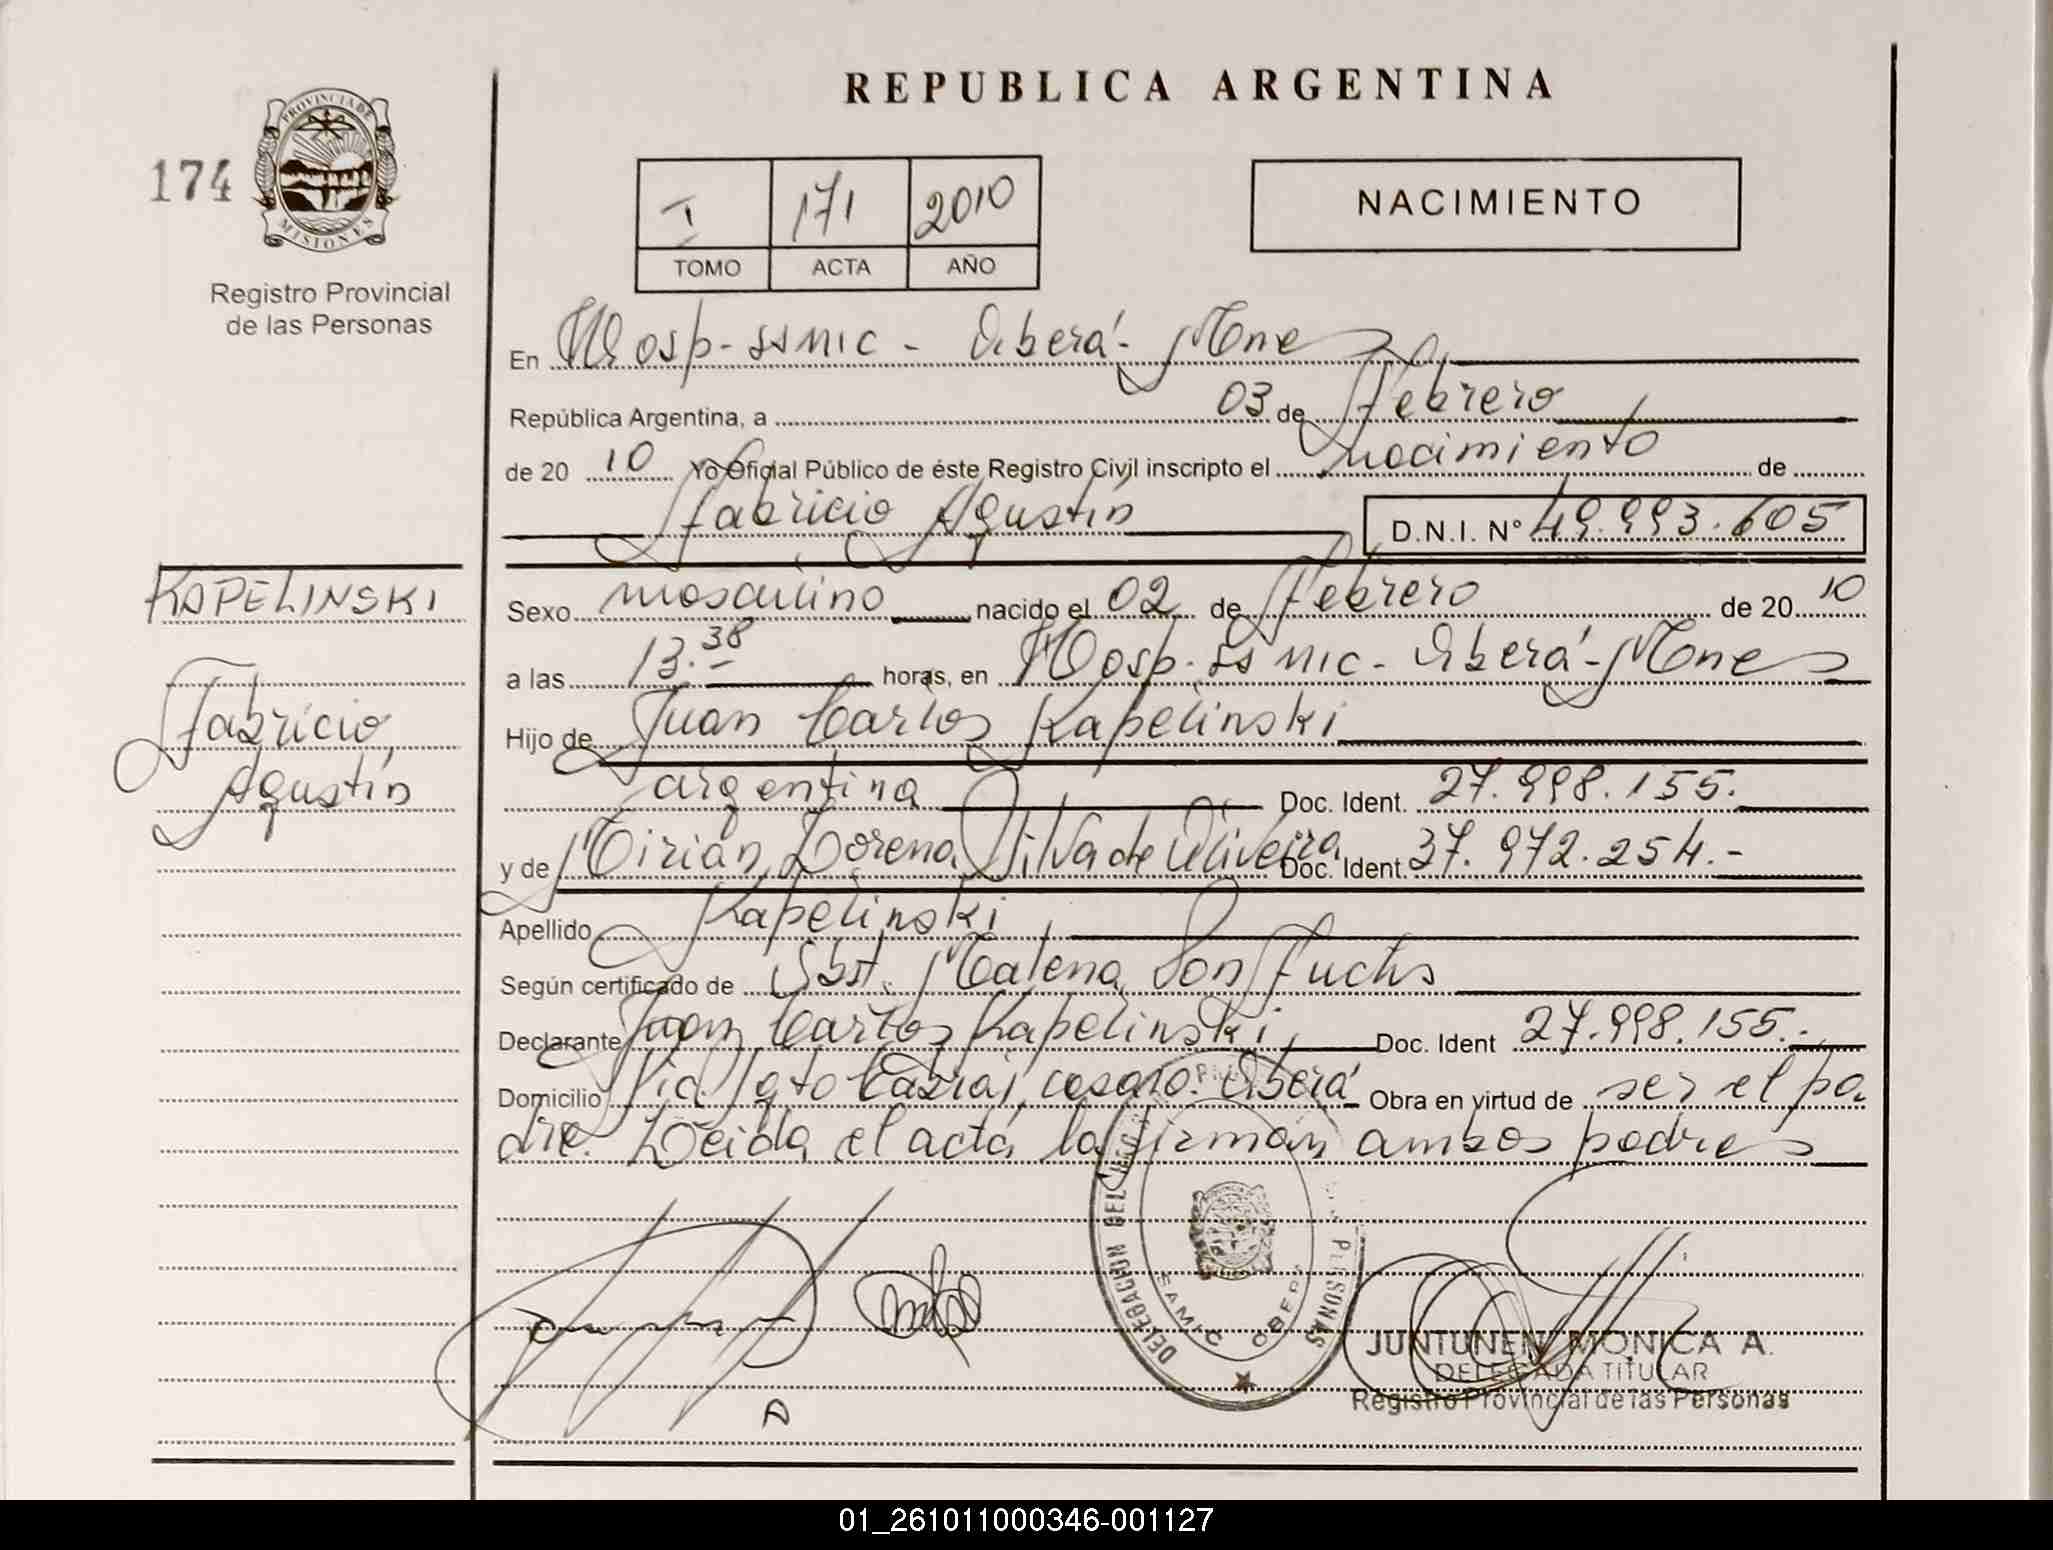 REPUBLICA ARGENTINA
174
PROVINCIA DE
MISIONES
Registro Provincial
de las Personas
I 171 2010
TOMO ACTA AÑO
NACIMIENTO
En Hosp-SSMIC - Oberá - Mnes
República Argentina, a 03 de Febrero
de 20 10 Yo Oficial Público de éste Registro Civil inscripto el nacimiento de
Fabricio Agustín D.N.I. N° 49.993.605
KAPELINSKI
Fabricio
Agustín
Sexo masculino nacido el 02 de Febrero de 20 10
a las 13.38 horas, en Hosp. SSMIC - Oberá - Mnes
Hijo de Juan Carlos Kapelinski
argentina Doc. Ident. 27.998.155.
y de Mirian Lorena Silva de Oliveira Doc. Ident. 37.972.254.-
Apellido Kapelinski
Según certificado de Obst. Malena Fuchs
Declarante Juan Carlos Kapelinski Doc. Ident 27.998.155.-
Domicilio Sgto Cabral, Oberá Obra en virtud de ser el pa
dre. Leida el acta la firman ambos padres
DELEGACION DEL PERSONAS
SAMIC OBERA
JUNTUNEN MONICA A.
DELEGADA TITULAR
Registro Provincial de las Personas
01_261011000346-001127